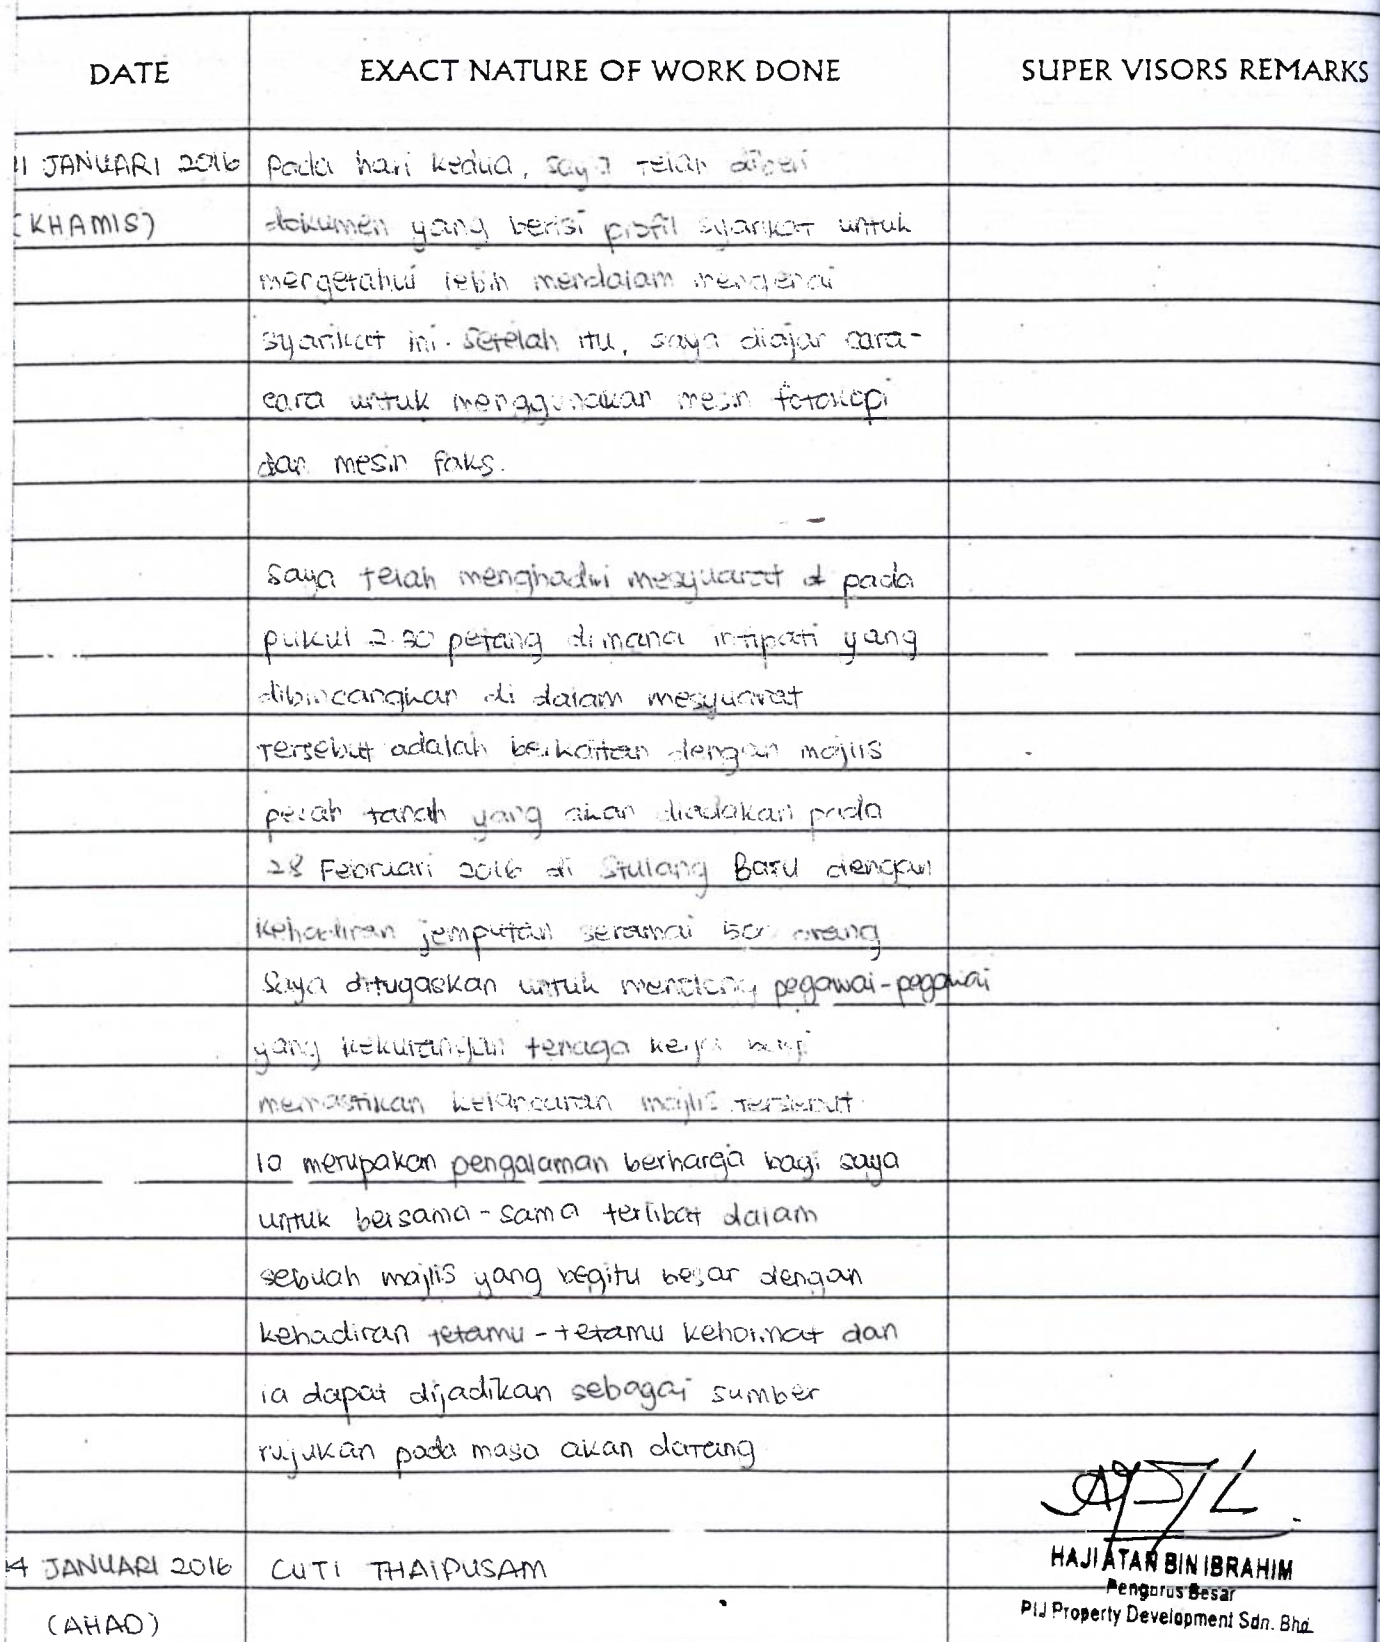 DATE EXACT NATURE OF WORK DONE SUPER VISORS REMARKS
11 JANUARI 2016 Pada hari kedua, saya telah diberi
(KHAMIS) dokumen yang berisi profil syarikat untuk
mengetahui lebih mendalam mengenai
syarikat ini. Setelah itu, saya diajar cara-
cara untuk menggunakan mesin fotokopi
dan mesin faks.
Saya telah menghadiri mesyuarat pada
pukul 2.30 petang dimana intipati yang
dibincangkan di dalam mesyuarat
tersebut adalah berkaitan dengan majlis
pecah tanah yang akan diadakan pada
28 Februari 2016 di Stulang Baru dengan
kehadiran jemputan seramai orang
Saya ditugaskan untuk menolong pegawai-pegawai
yang kekurangan tenaga kerja bagi
memastikan kelancaran majlis tersebut.
Ia merupakan pengalaman berharga bagi saya
untuk bersama-sama terlibat dalam
sebuah majlis yang begitu besar dengan
kehadiran tetamu-tetamu kehormat dan
ia dapat dijadikan sebagai sumber
rujukan pada masa akan datang
4 JANUARI 2016 CUTI THAIPUSAM
(AHAD)
HAJI ATAN BIN IBRAHIM
Pengurus Besar
PIJ Property Development Sdn. Bhd.